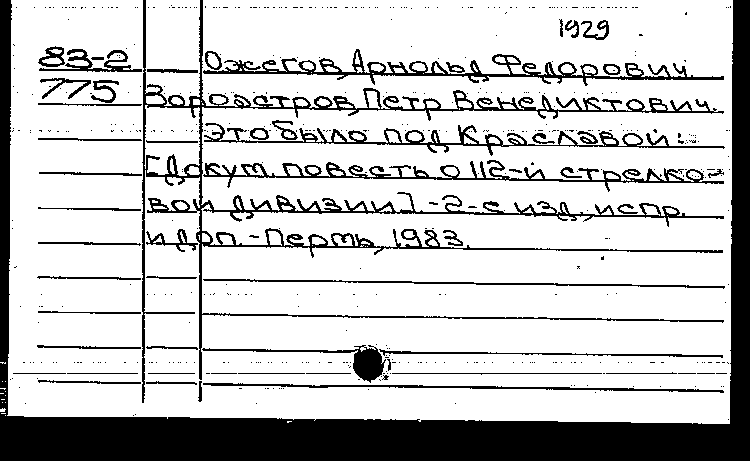 1929
83-2 Ожегов, Арнольд Федорович.
775 Зороастров, Петр Венедиктович.
Это было под Краславой:
[Докум. повесть о 112-й стрелко-
вой дивизии]. -2-е изд., испр.
и доп. - Пермь, 1983.